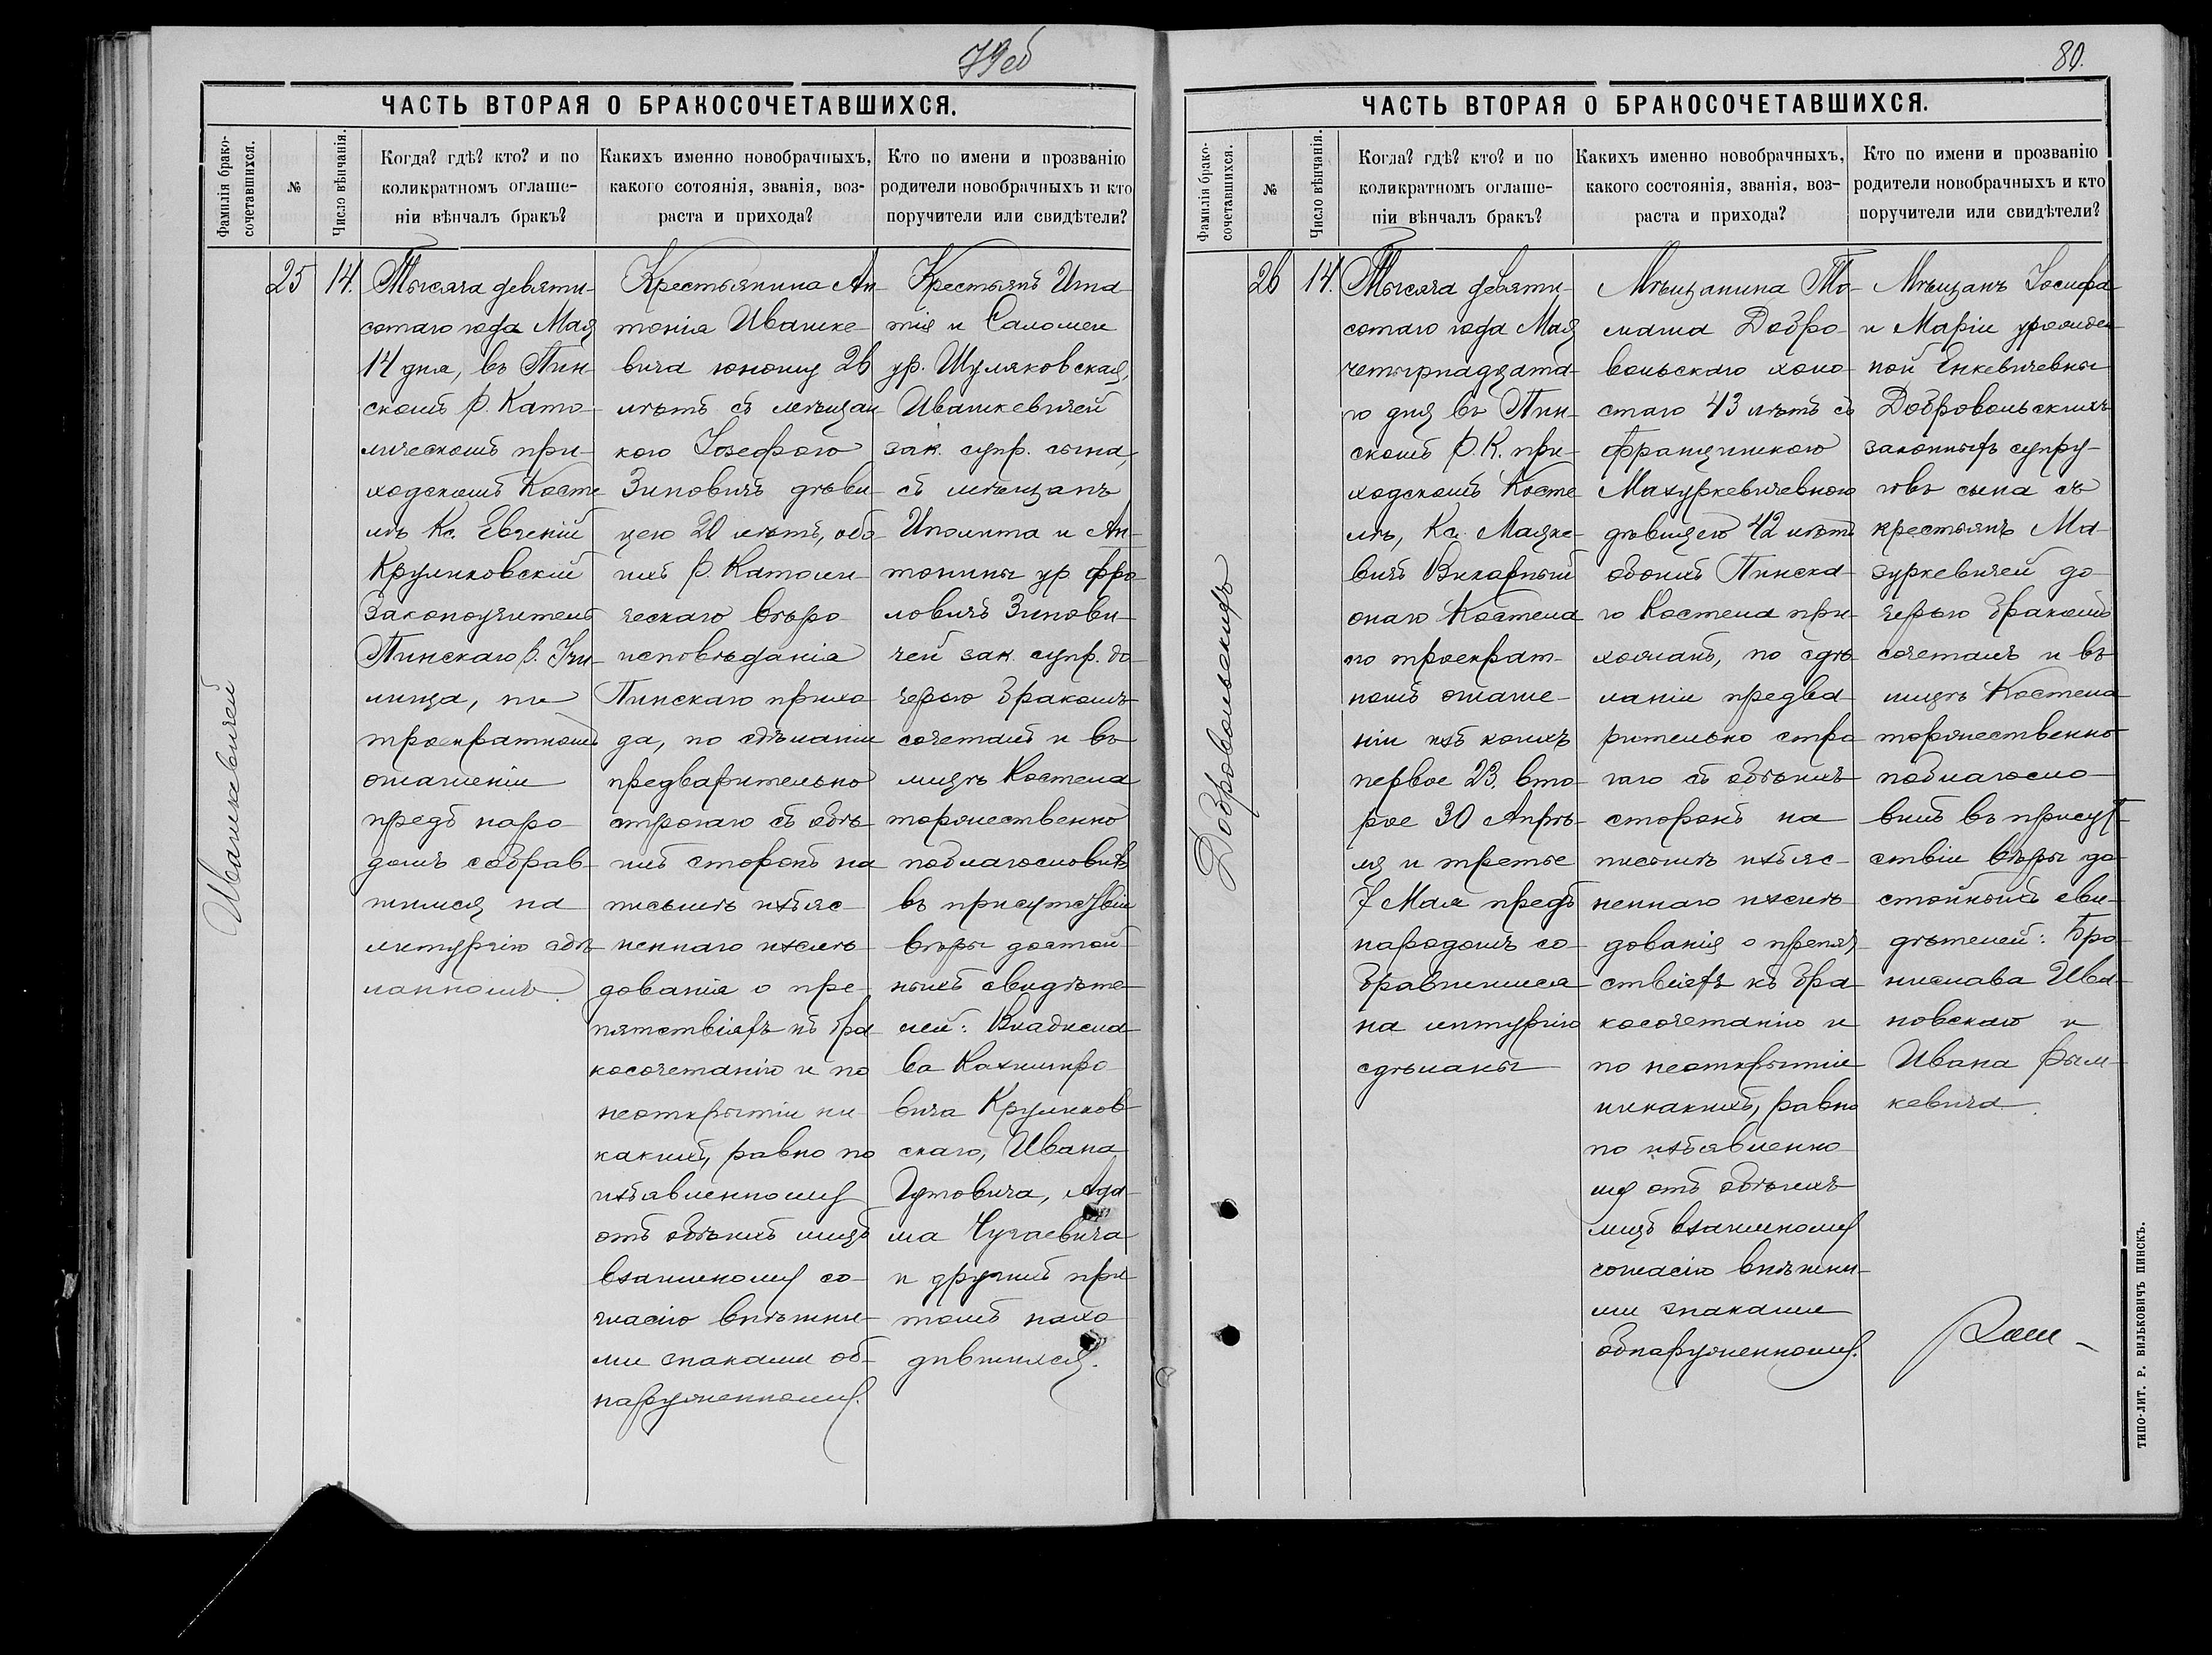 79об
ЧАСТЬ ВТОРАЯ О БРАКОСОЧЕТАВШИХСЯ.
Фамилія брако-
сочетавшихся.
№
Число вѣнчанія.
Когда? гдѣ? кто? и по
коликратномъ оглаше-
ніи вѣнчалъ бракъ?
Какихъ именно новобрачныхъ,
какого сотоянія, званія, воз-
раста и прихода?
Кто по имени и прозванію
родители новобрачныхъ и кто
поручители или свидѣтели?
Ивашкевичей
25
14.
Тысяча девяти-
сотаго года Мая
14 дня, въ Пин-
скомъ Р. Като-
лическомъ при-
ходскомъ Косте-
лѣ Кс. Евгеній
Круликовскій
Законоучитель
Пинскаго Р. Учи-
лища, по
троекратномъ
оглашеніи
предъ наро-
домъ собрав-
шимся на
литургію сдѣ-
ланномъ.
Крестьянина Ан-
тонія Ивашке-
вича юношу 26
лѣтъ съ мѣщан-
кою Іозефою
Зиновичъ дѣви-
цею 20 лѣтъ, обо-
ихъ Р. Католи-
ческаго вѣро-
исповѣданія
Пинскаго прихо-
да, по сдѣланіи
предварительно
строгаго съ обѣ-
ихъ сторонъ на
письмѣ изъяс-
неннаго изслѣ-
дованія о пре-
пятствіяхъ къ бра-
косочетанію и по
неоткрытіи ни-
какихъ, равно по
изъявленному
отъ обѣихъ лицъ
взаимному со-
гласію внѣшни-
ми знаками об-
наруженному.
Крестьянъ Игна-
тія и Саломеи
ур. Шуляковская,
Ивашкевичей
зак. супр. сына,
съ мѣщанъ
Иполита и Ан-
тонины ур Фро-
ловичъ Зинови-
чей зак. супр. до-
черью бракомъ
сочеталъ и въ
лицѣ Костела
торжественно
поблагословилъ
въ присутствіи
вѣры достой-
ныхъ свидѣте-
лей: Владисла-
ва Казимиро-
вича Круликов-
скаго, Ивана
Гутовича, Ада-
ма Чугаевича
и другихъ при
томъ нахо-
дившихся.
80.
ЧАСТЬ ВТОРАЯ О БРАКОСОЧЕТАВШИХСЯ.
Фамилія брако-
сочетавшихся.
№
Число вѣнчанія.
Когда? гдѣ? кто? и по
коликратномъ оглаше-
ніи вѣнчалъ бракъ?
Какихъ именно новобрачныхъ,
какого состоянія, званія, воз-
раста и прихода?
Кто по имени и прозванію
родители новобрачныхъ и кто
поручители или свидѣтели?
Добровольскихъ
26
14.
Тысяча девяти-
сотаго года Мая
четырнадцата-
го дня въ Пин-
скомъ Р. К. при-
ходскомъ Косте-
лѣ, Кс. Мацке-
вичъ Викарный
онаго Костела
по троекрат-
номъ оглаше-
ніи изъ коихъ
первое 23. вто-
рое 30 Апрѣ-
ля и третье
7 Мая предъ
народомъ со-
бравшимся
на литургію
сдѣланы
Мѣщанина То-
маша Добро-
вольскаго холо-
стаго 43 лѣтъ съ
Францишкою
Мазуркевичевною
дѣвицею 42 лѣтъ
обоихъ Пинска-
го Костела при-
хожанъ, по сдѣ-
ланіи предва-
рительно стро-
гаго съ обѣихъ
сторонъ на
письмѣ изъяс-
неннаго изслѣ-
дованія о препят-
ствіяхъ къ бра-
косочетанію и
по неоткрытіи
никакихъ, равно
по изъявленно-
му отъ обѣихъ
лицъ взаимному
согласію внѣшни-
ми знаками
обнаруженному.
Мѣщанъ Іосифа
и Маріи урожден-
ной Енкевичевны
Добровольскихъ
законныхъ супру-
говъ сына съ
крестьянъ Ма-
зуркевичей до-
черью бракомъ
сочеталъ и въ
лицѣ Костела
торжественно
поблагосло-
вилъ въ присут-
ствіи вѣры до-
стойныхъ сви-
дѣтелей: Бро-
нислава Ива-
новскаго и
Ивана Рым-
кевича.
ТИПО-ЛИТ. Р. ВИЛЬКОВИЧЪ ПИНСКЪ.